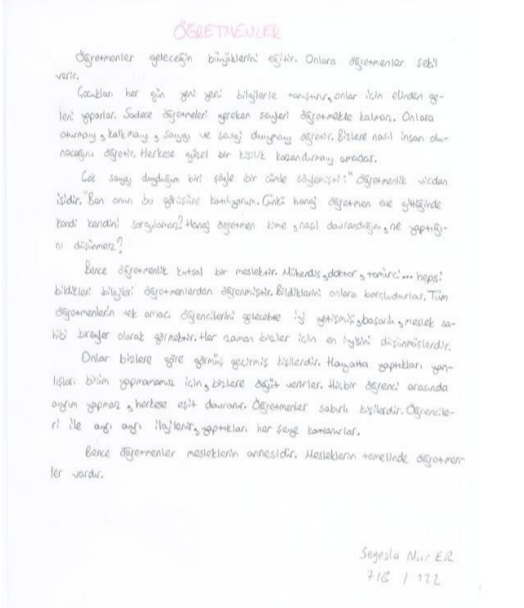 ÖĞRETMENLER
Öğretmenler geleceğin büyüklerini eğitir. Onlara öğretmenler şekil
verir.
Çocukları her gün yeni yeni bilgilerle tanıştırır, onlar için elinden ge-
leni yaparlar. Sadece öğretmeleri gereken şeyleri öğretmekle kalmaz. Onlara
oturmayı, kalkmayı, saygı ve sevgi duymayı öğretir. Bizlere nasıl insan olu-
nacağını öğretir. Herkese güzel bir kişilik kazandırmayı amaçlar.
Çok saygı duyduğum biri şöyle bir cümle söylemişti: "Öğretmenlik vicdan
işidir." Ben onun bu görüşüne katılıyorum. Çünkü hangi öğretmen eve gittiğinde
kendi kendini sorgulamaz? Hangi öğretmen kime, nasıl davrandığını, ne yaptığı-
nı düşünmez?
Bence öğretmenlik kutsal bir meslektir. Mühendis, doktor, tamirci... hepsi
bildikleri bilgileri öğretmenlerden öğrenmiştir. Bildiklerini onlara borçludurlar. Tüm
öğretmenlerin tek amacı öğrencilerini gelecekte iyi yetişmiş, başarılı, meslek sa-
hibi bireyler olarak görmektir. Her zaman bizler için en iyisini düşünmüşlerdir.
Onlar bizlere göre görmüş geçirmiş kişilerdir. Hayatta yaptıkları yan-
lışları bizim yapmamamız için, bizlere öğüt verirler. Hiçbir öğrenci arasında
ayrım yapmaz, herkese eşit davranır. Öğretmenler sabırlı kişilerdir. Öğrencile-
ri ile ayrı ayrı ilgilenir, yaptıkları her şeye katlanırlar.
Bence öğretmenler mesleklerin annesidir. Mesleklerin temelinde öğretmen-
ler vardır.
Nur ER
7/B / 122